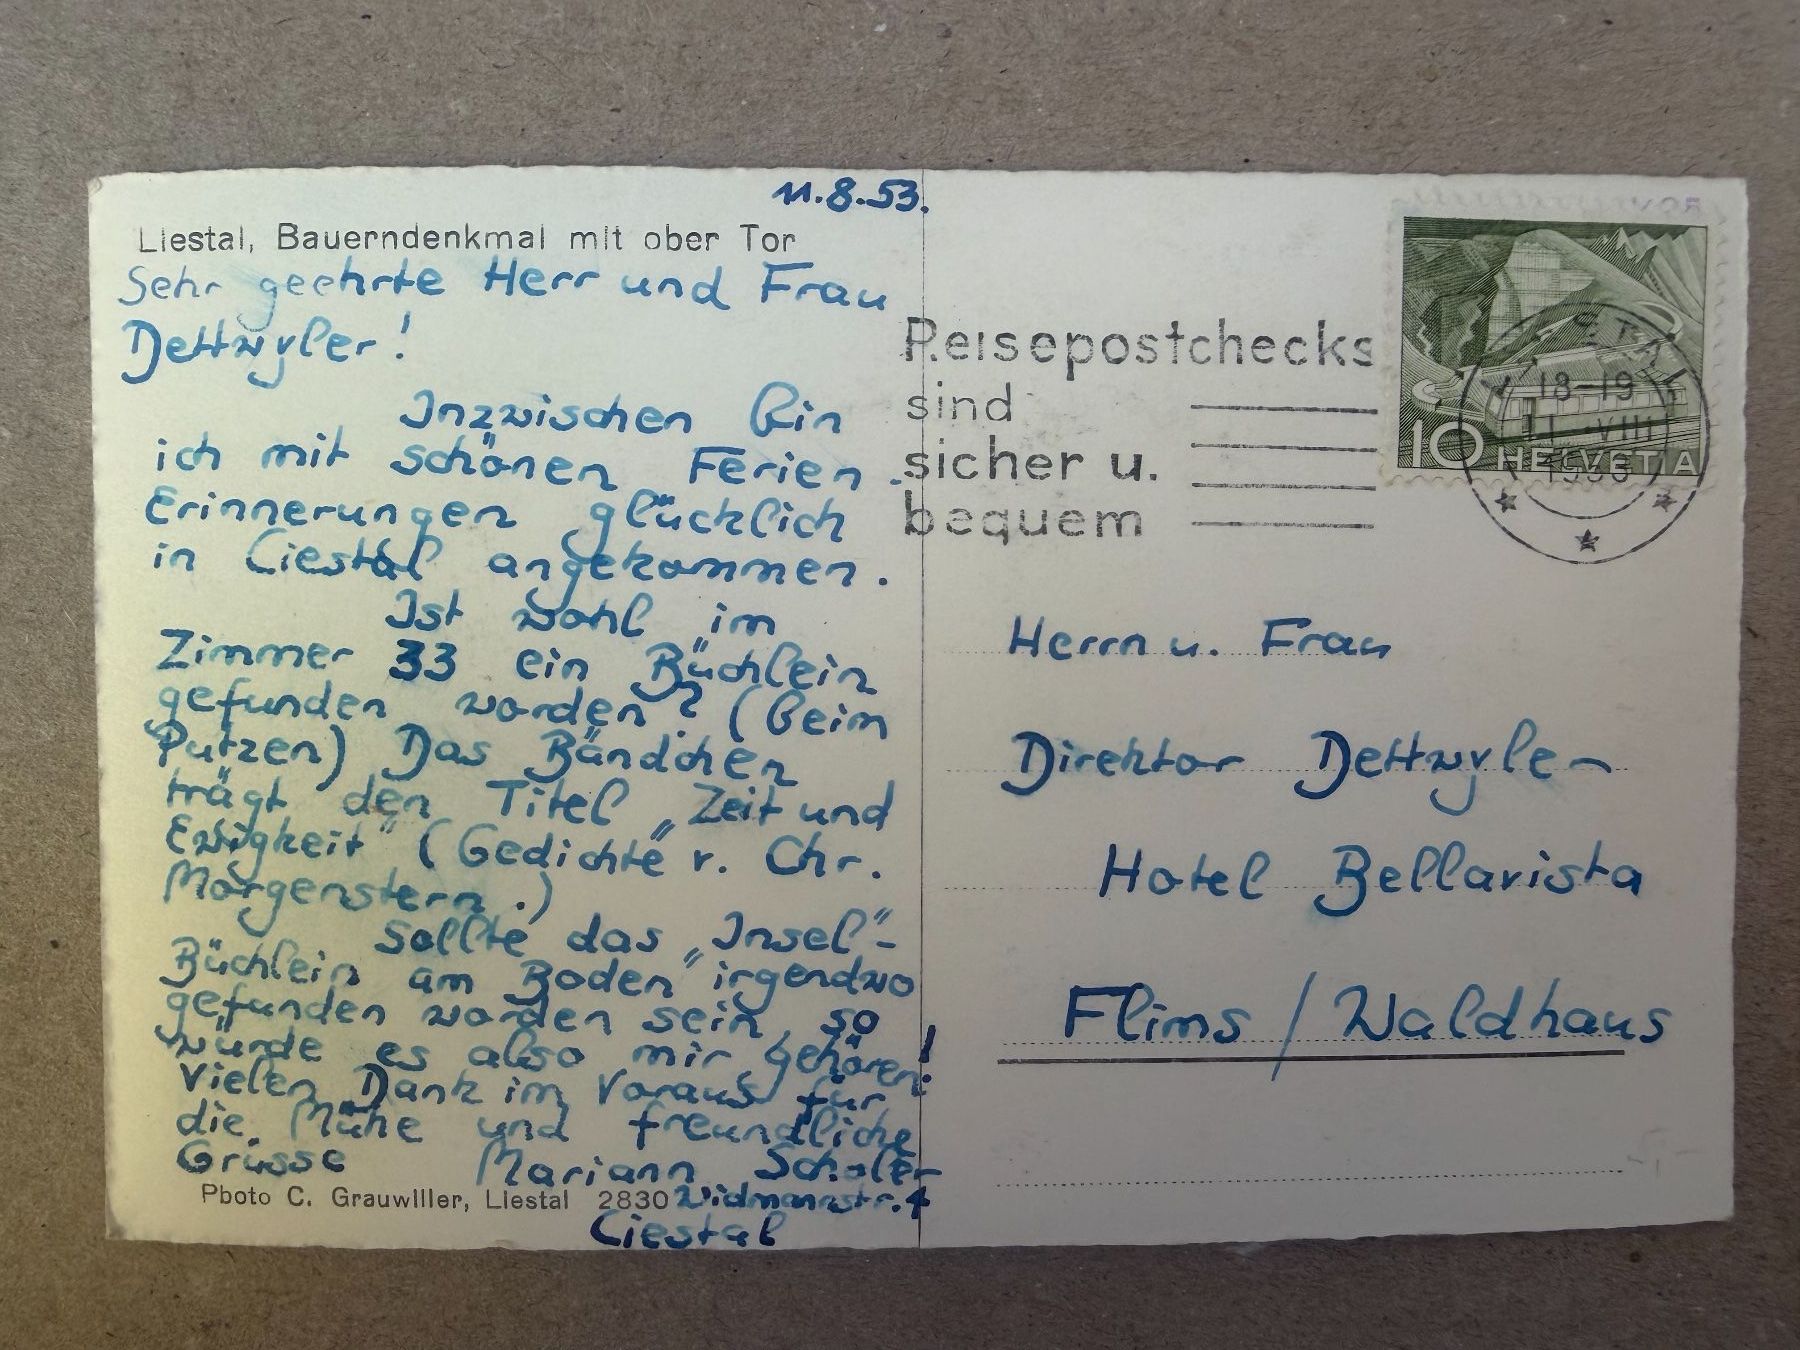 11.8.53.
Liestal, Bauerndenkmal mit ober Tor
Sehr geehrte Herr und Frau
Dettwyler!
Inzwischen bin
ich mit schönen Ferien-
Erinnerungen glücklich
in Liestal angekommen.
Ist wohl im
Zimmer 33 ein Büchlein
gefunden worden? (beim
Putzen) Das Bändchen
trägt den Titel „Zeit und
Ewigkeit" (Gedichte v. Chr.
Morgenstern.)
Sollte das „Insel"-
Büchlein am Boden irgendwo
gefunden worden sein, so
würde es also mir gehören!
Vielen Dank im Voraus für
die Mühe und freundliche
Grüsse Mariann
Photo C. Grauwiller, Liestal 2830 Widmannstr. 4
Liestal
Reisepostchecks
sind
sicher u.
bequem
18-19
11.VIII
10 HELVETIA
Herrn u. Frau
Direktor Dettwyler
Hotel Bellavista
Flims / Waldhaus